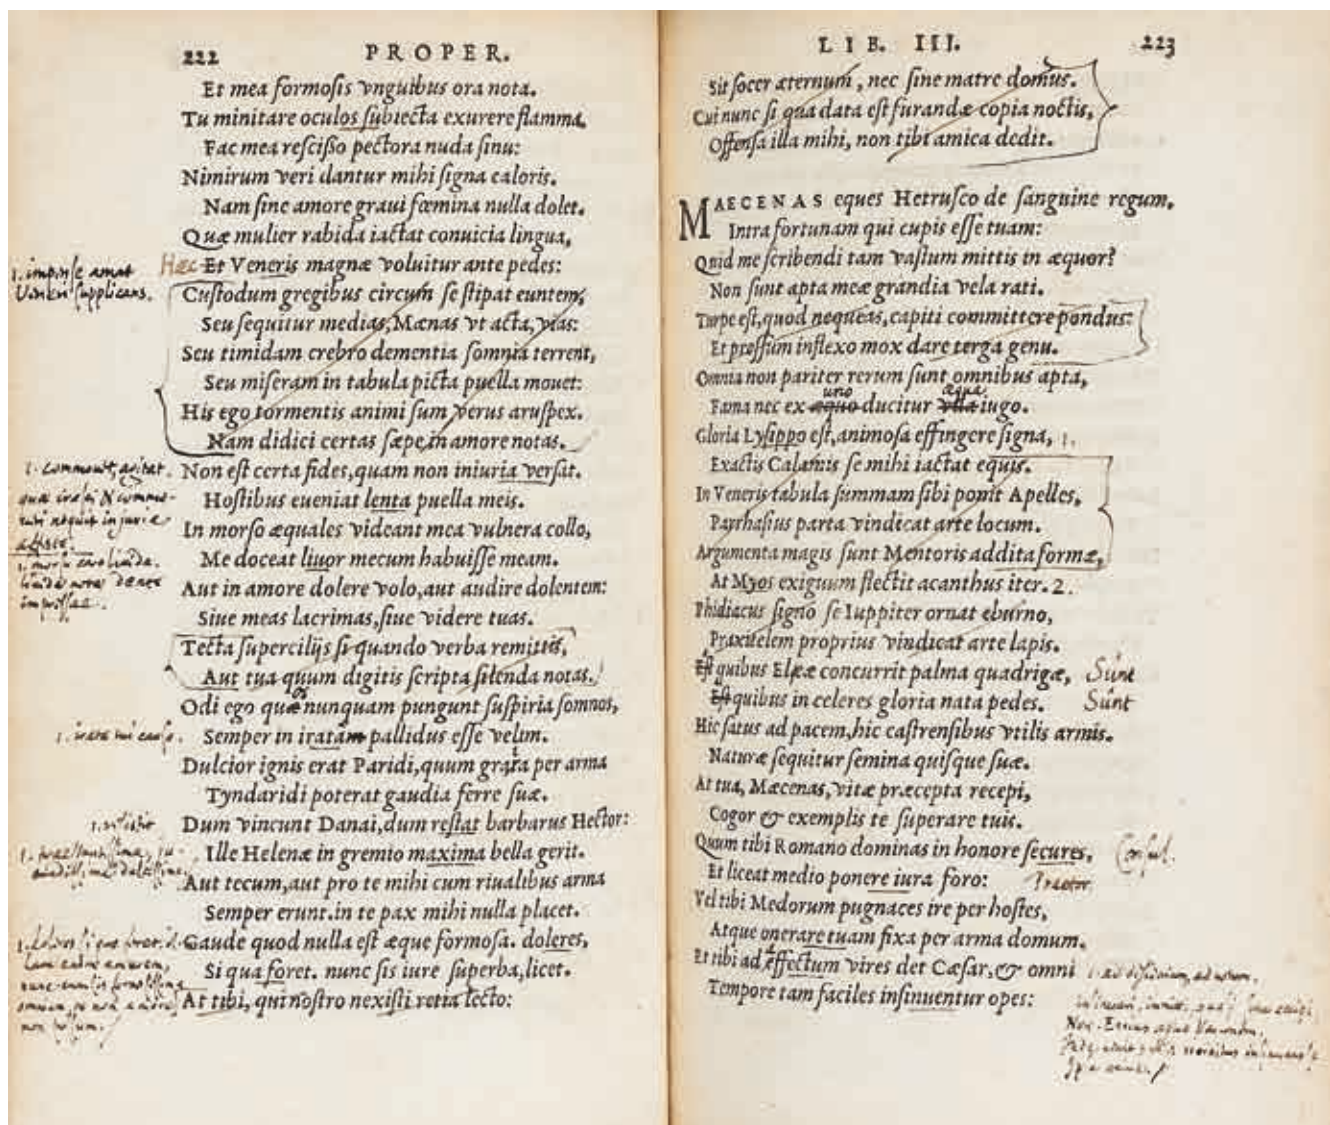 222 PROPER.
Et mea formosis vnguibus ora nota.
Tu minitare oculos subiecta exurere flamma,
Fac mea rescisso pectora nuda sinu:
Nimirum veri dantur mihi signa caloris.
Nam sine amore graui fœmina nulla dolet.
Quæ mulier rabida iactat conuicia lingua,
Hæc Et Veneris magnæ voluitur ante pedes:
1. impense amat
Veneri supplicans.
Custodum gregibus circum se stipat euntem,
Seu sequitur medias, Mænas vt acta, vias:
Seu timidam crebro dementia somnia terrent,
Seu miseram in tabula picta puella mouet:
His ego tormentis animi sum verus aruspex.
Nam didici certas sæpe in amore notas.
Non est certa fides, quam non iniuria versat.
Hostibus eueniat lenta puella meis.
In morso æquales videant mea vulnera collo,
Me doceat liuor mecum habuisse meam.
Aut in amore dolere volo, aut audire dolentem:
Siue meas lacrimas, siue videre tuas.
Tecta supercilijs si quando verba remittis,
Aut tua quum digitis scripta silenda notas.
Odi ego quæ nunquam pungunt suspiria somnos,
Semper in iratam pallidus esse velim.
Dulcior ignis erat Paridi, quum grata per arma
Tyndaridi poterat gaudia ferre suæ.
Dum vincunt Danai, dum restat barbarus Hector:
Ille Helenæ in gremio maxima bella gerit.
Aut tecum, aut pro te mihi cum riualibus arma
Semper erunt. in te pax mihi nulla placet.
Gaude quod nulla est æque formosa. doleres,
Si qua foret. nunc sis iure superba, licet.
At tibi, qui nostro nexisti retia lecto:
LIB. III. 223
Sit socer æternum, nec sine matre domus.
Cui nunc si qua data est furandæ copia noctis,
Offensa illa mihi, non tibi amica dedit.
MAECENAS eques Hetrusco de sanguine regum,
Intra fortunam qui cupis esse tuam:
Quid me scribendi tam vastum mittis in æquor?
Non sunt apta meæ grandia vela rati.
Turpe est, quod nequeas, capiti committere pondus:
Et pressum inflexo mox dare terga genu.
Omnia non pariter rerum sunt omnibus apta,
uno æqua
Fama nec ex æquo ducitur vlla iugo.
Gloria Lysippo est, animosa effingere signa, 1.
Exactis Calamis se mihi iactat equis.
In Veneris tabula summam sibi ponit Apelles,
Parrhasius parta vindicat arte locum.
Argumenta magis sunt Mentoris addita formæ,
At Myos exiguum flectit acanthus iter. 2.
Phidiacus signo se Iuppiter ornat eburno,
Praxitelem proprius vindicat arte lapis.
Est quibus Eleæ concurrit palma quadrigæ, Sunt
Est quibus in celeres gloria nata pedes. Sunt
Hic satus ad pacem, hic castrensibus vtilis armis.
Naturæ sequitur semina quisque suæ.
At tua, Mæcenas, vitæ præcepta recepi,
Cogor & exemplis te superare tuis.
Quum tibi Romano dominas in honore secures, Consul.
Et liceat medio ponere iura foro: Praetor
Vel tibi Medorum pugnaces ire per hostes,
Atque onerare tuam fixa per arma domum.
Et tibi ad effectum vires det Cæsar, & omni
Tempore tam faciles insinuentur opes: